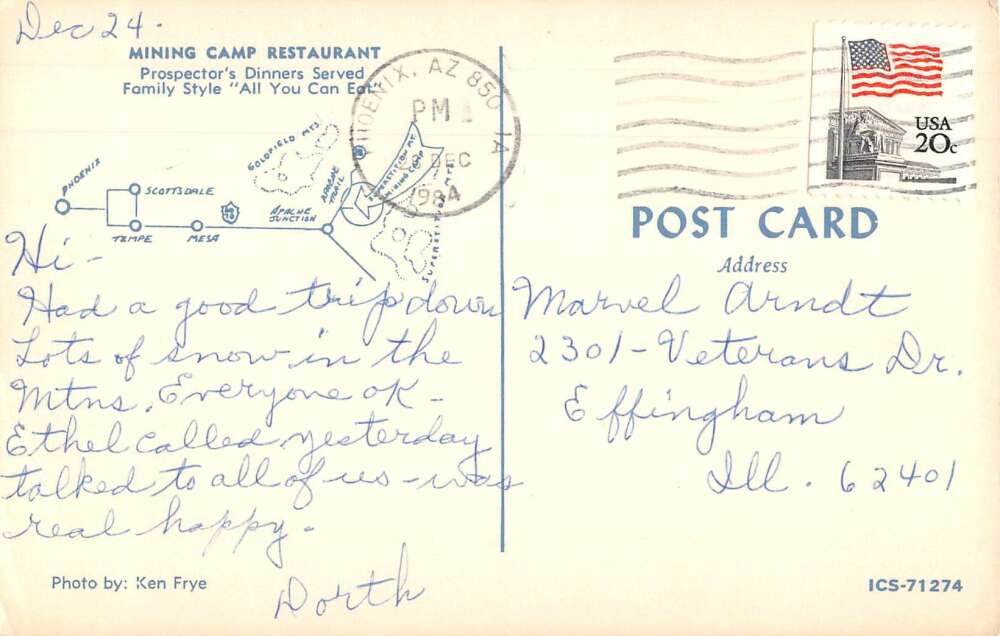 Dec 24.
MINING CAMP RESTAURANT
Prospector's Dinners Served
Family Style "All You Can Eat"
PHOENIX, AZ 850 1A
PM
DEC
1984
USA
20c
GOLDFIELD MTS.
PHOENIX
SCOTTSDALE
TEMPE
MESA
APACHE JUNCTION
APACHE TRAIL
SUPERSTITION MT.
MINING CAMP
SUPERSTITION MTS
POST CARD
Address
Hi-
Had a good trip down
Lots of snow in the
Mtns. Everyone OK-
Ethel called yesterday
talked to all of us - was
real happy.
Dorth
Marvel Arndt
2301-Veterans Dr.
Effingham
Ill. 62401
Photo by: Ken Frye
ICS-71274